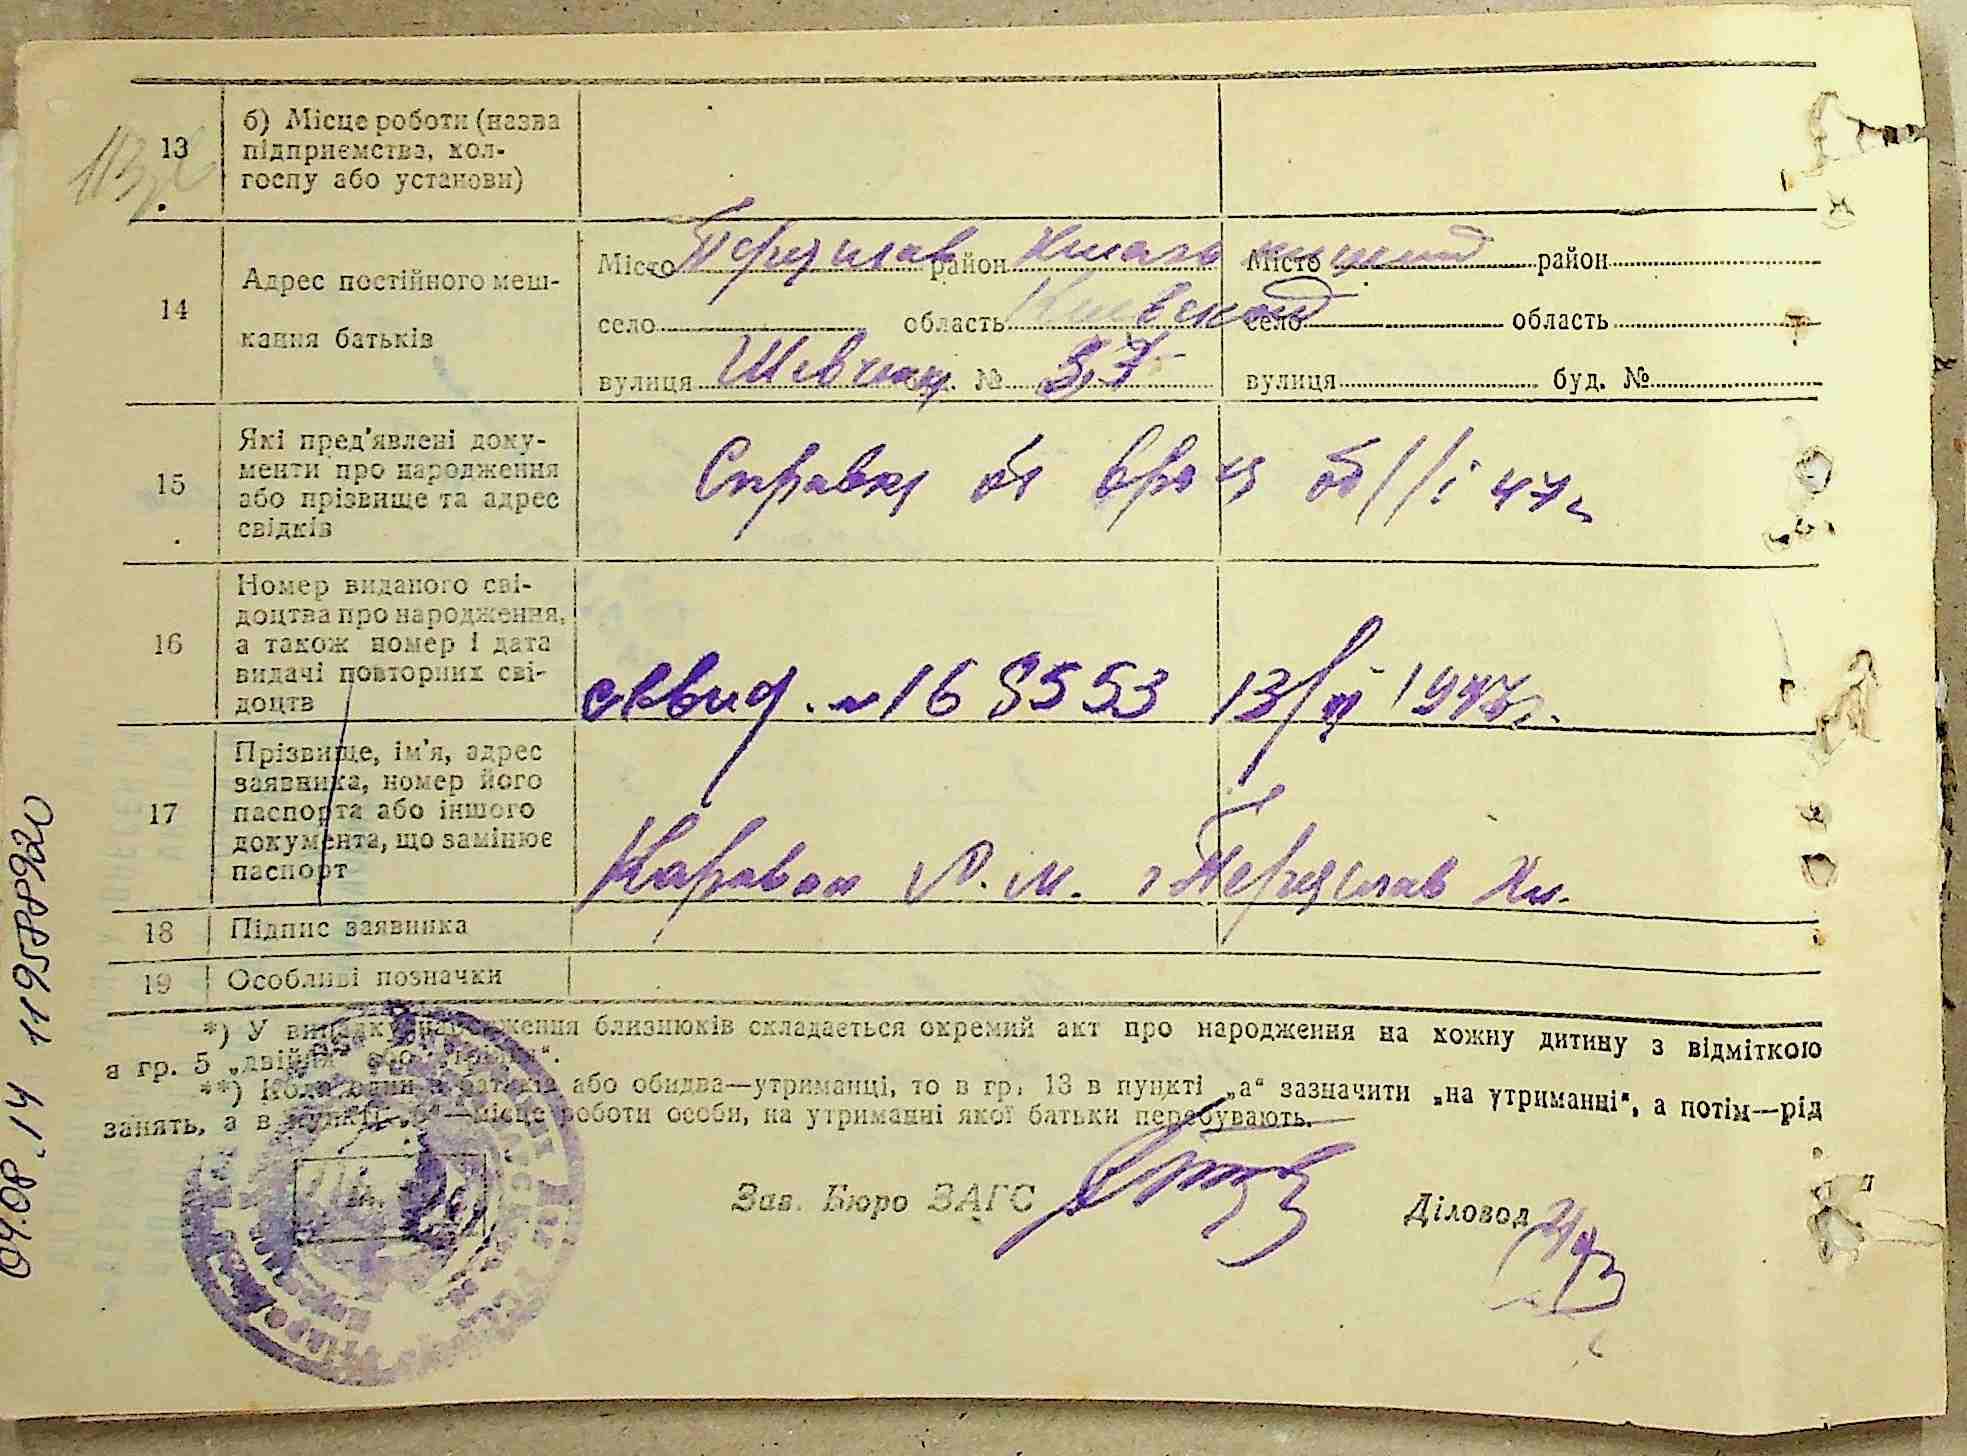 13
б) Місце роботи (назва
підприємства, кол-
госпу або установи)
14
Адрес постійного меш-
кання батьків
Місто Переяслав район Хмельницкий Місто район
село область Киевской село область
вулиця Шевченк буд. № 37 вулиця буд. №
15
Які пред'явлені доку-
менти про народження
або прізвище та адрес
свідків
Справка от врача от 47г
16
Номер виданого сві-
доцтва про народження,
а також номер і дата
видачі повторних сві-
доцтв
свид. № 168553 13/ 1947г.
17
Прізвище, ім'я, адрес
заявника, номер його
паспорта або іншого
документа, що замінює
паспорт
Караван М. г Переяслав Хм.
18 Підпис заявника
19 Особливі позначки
*) У випадку народження близнюків складається окремий акт про народження на кожну дитину з відміткою
в гр. 5 „двійня" або „трійня".
**) Коли один з батьків або обидва—утриманці, то в гр. 13 в пункті „а" зазначити „на утриманні", а потім—рід
занять, а в пункті „б"—місце роботи особи, на утриманні якої батьки перебувають.
Зав. Бюро ЗАГС Діловод
04.08.14 1195788920